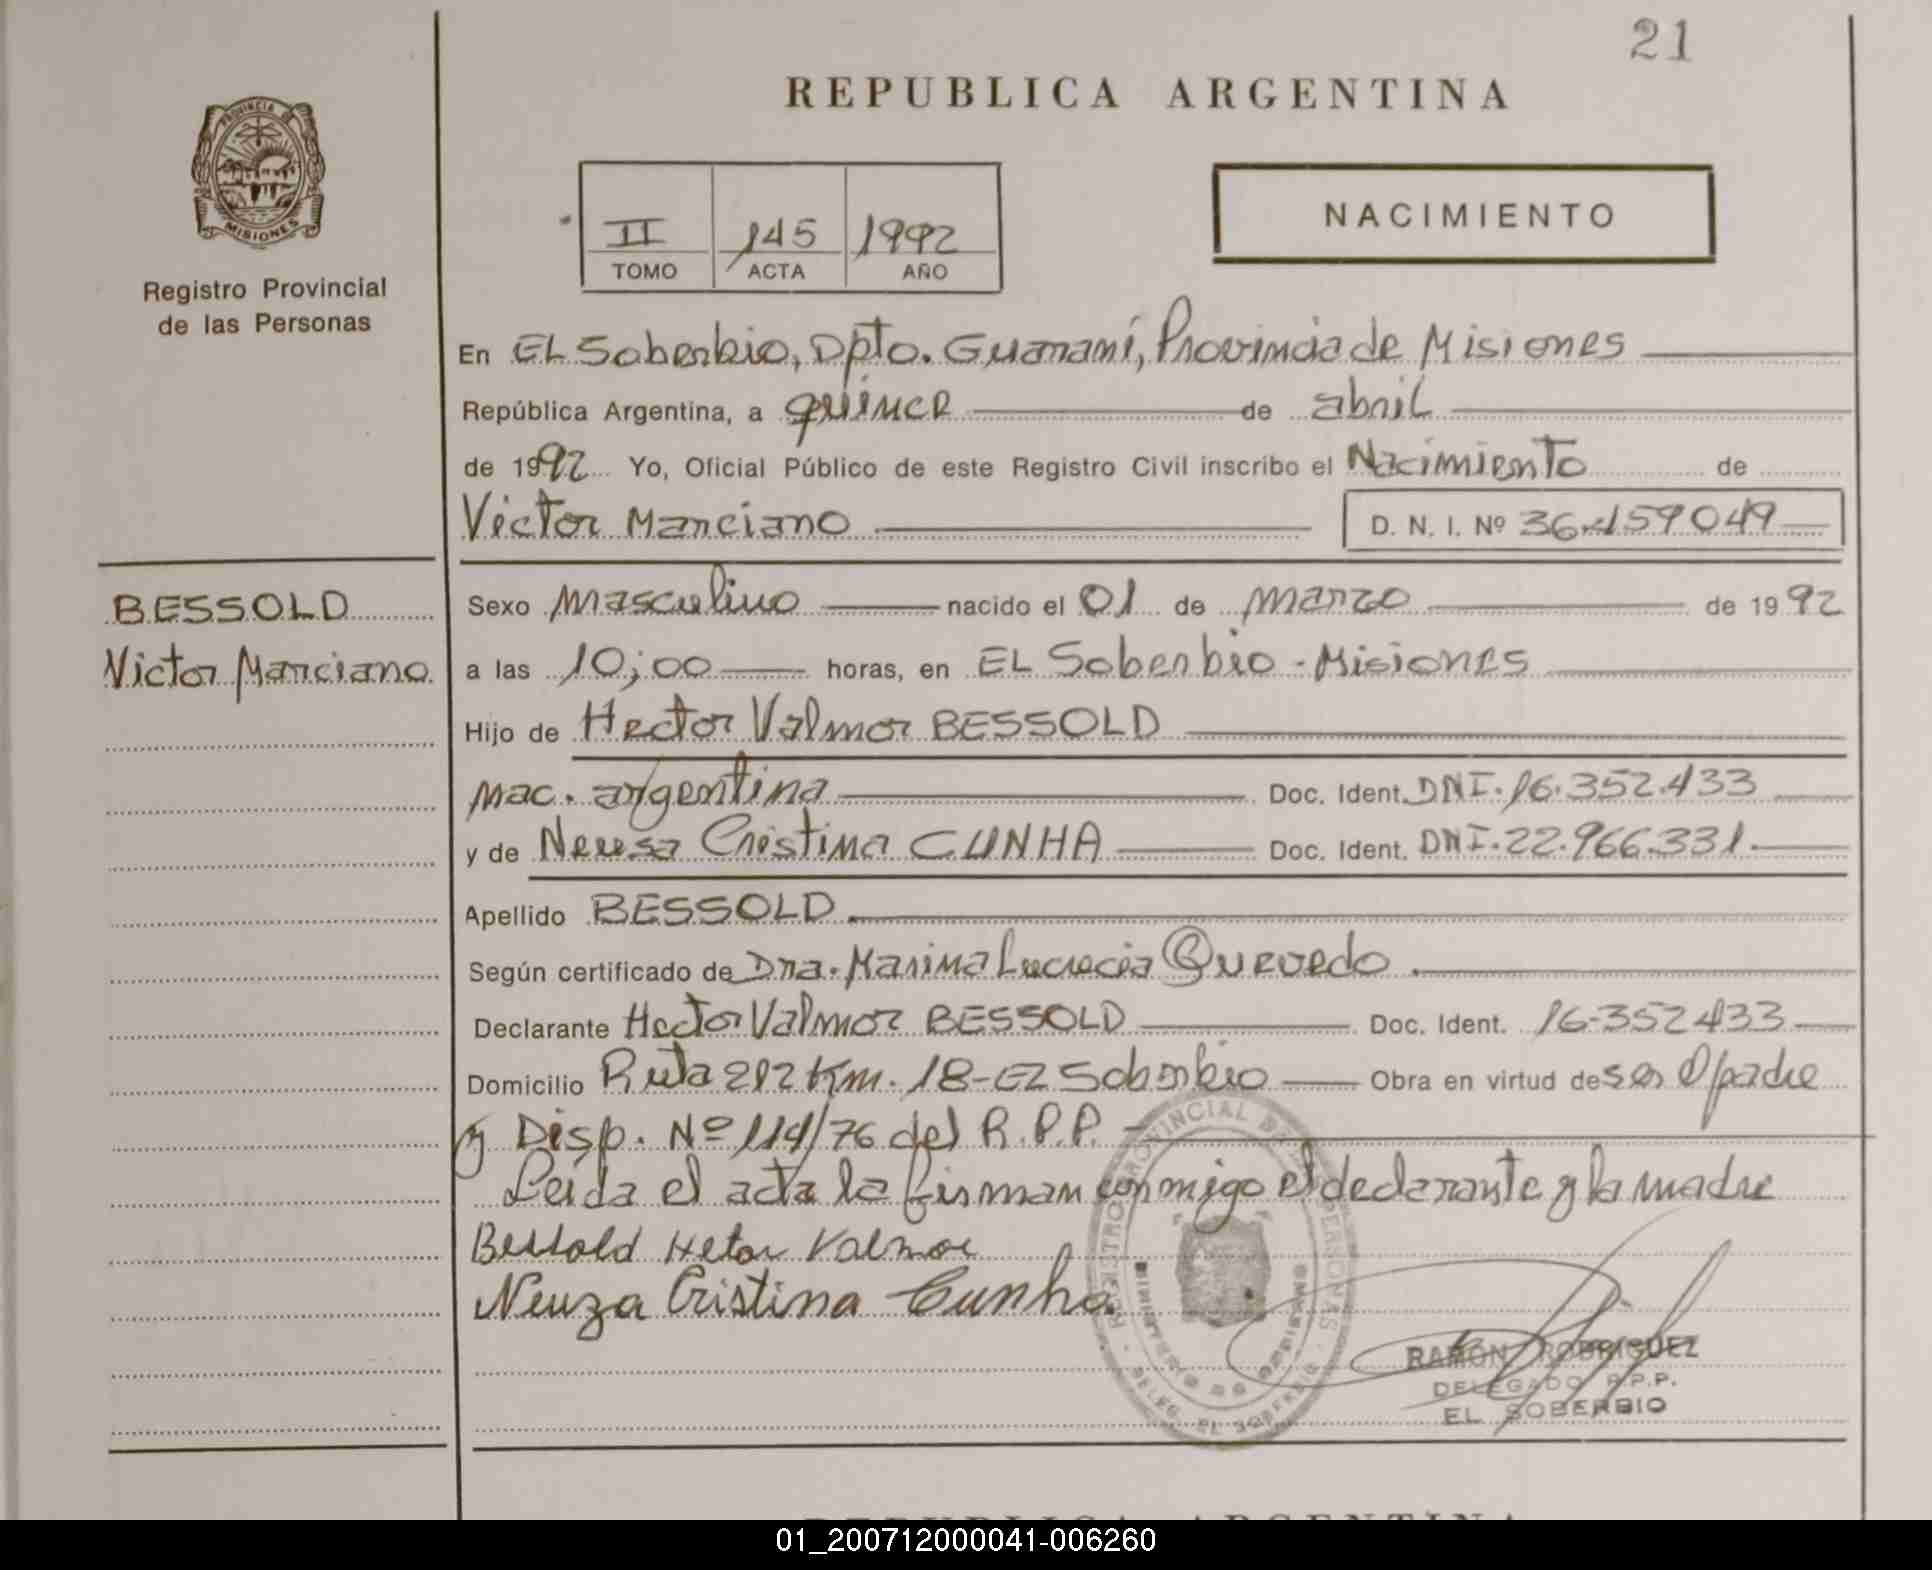 21
REPUBLICA ARGENTINA
PROVINCIA DE
MISIONES
Registro Provincial
de las Personas
II 145 1992
TOMO ACTA AÑO
NACIMIENTO
En EL Soberbio, Dpto. Guaraní, Provincia de Misiones
República Argentina, a quince de abril
de 1992 Yo, Oficial Público de este Registro Civil inscribo el Nacimiento de
Víctor Marciano D. N. I. Nº 36.459049
BESSOLD
Victor Marciano
Sexo masculino nacido el 01 de marzo de 1992
a las 10;00 horas, en EL Soberbio - Misiones
Hijo de Hector Valmor BESSOLD
nac. argentina Doc. Ident. DNI. 16.352.433
y de Neusa Cristina CUNHA Doc. Ident. DNI. 22.966.331.
Apellido BESSOLD.
Según certificado de Dra. Marina Lucrecia Quevedo.
Declarante Hector Valmor BESSOLD Doc. Ident. 16-352433
Domicilio Ruta 212 Km. 18-EL Soberbio Obra en virtud de ser el padre
y Disp. Nº 114/76 del R.P.P.
Leída el acta la firman conmigo el declarante y la madre
Bessold Hetor Valmor
Neuza Cristina Cunha
REGISTRO PROVINCIAL DE LAS PERSONAS
MINISTERIO DE GOBIERNO
DELEG. EL SOBERBIO
MISIONES
RAMON RODRIGUEZ
DELEGADO R.P.P.
EL SOBERBIO
REPUBLICA ARGENTINA
01_200712000041-006260